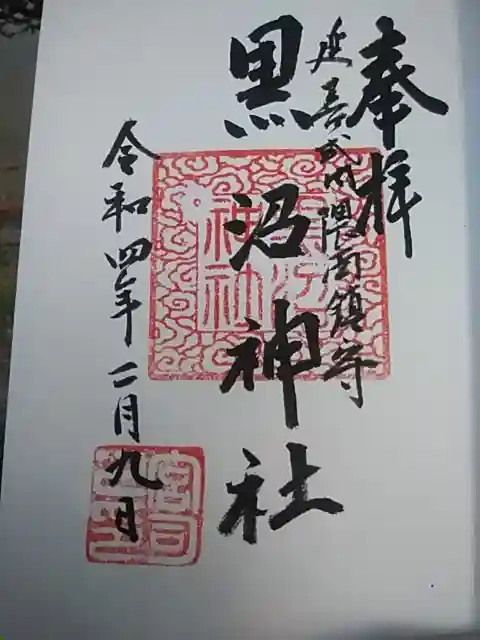 奉拝
延喜式内 信夫國鎮守
黒沼神社
令和四年二月九日